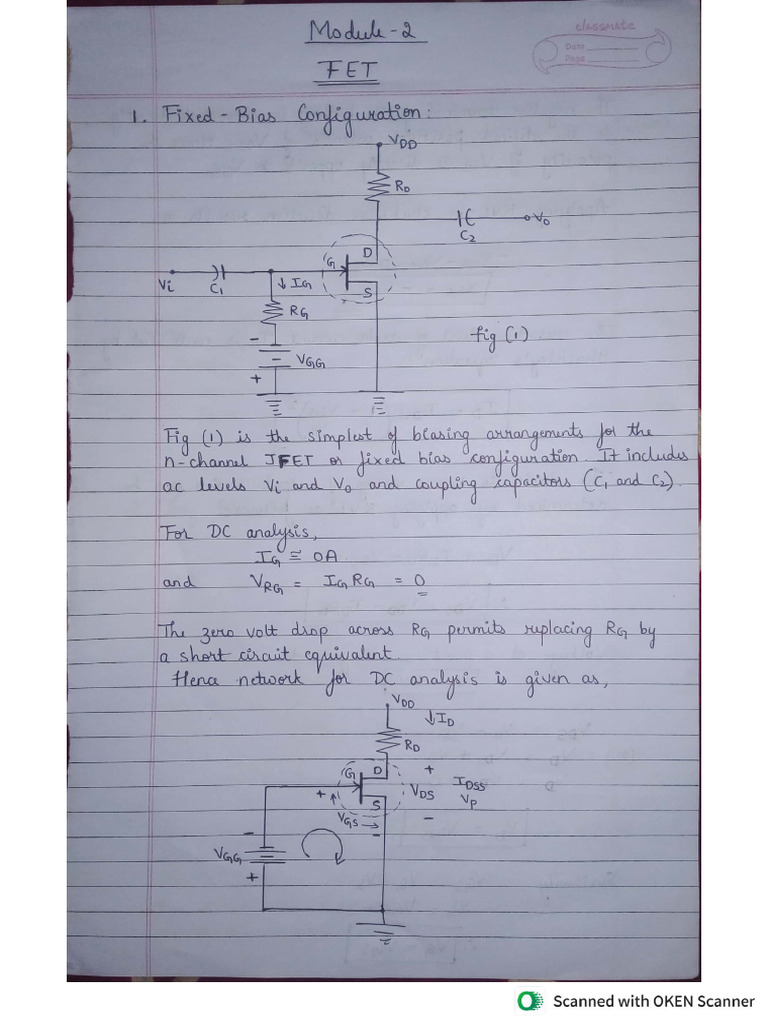 Module-2
classmate
Date
Page
FET
1. Fixed-Bias Configuration:
VDD
RD
C2
Vo
D
G
S
Vi
C1
↓ IG
RG
-
VGG
+
fig (1)
Fig (1) is the simplest of biasing arrangements for the
n-channel JFET or fixed bias configuration. It includes
ac levels Vi and Vo and coupling capacitors (C1 and C2).
For DC analysis,
IG ≅ 0A
and VRG = IG RG = 0
The zero volt drop across RG permits replacing RG by
a short circuit equivalent.
Hence network for DC analysis is given as,
VDD
↓ID
RD
G D
+
IDSS
VDS
VP
+ ↑
S
VGS →
-
-
-
VGG
+
Scanned with OKEN Scanner